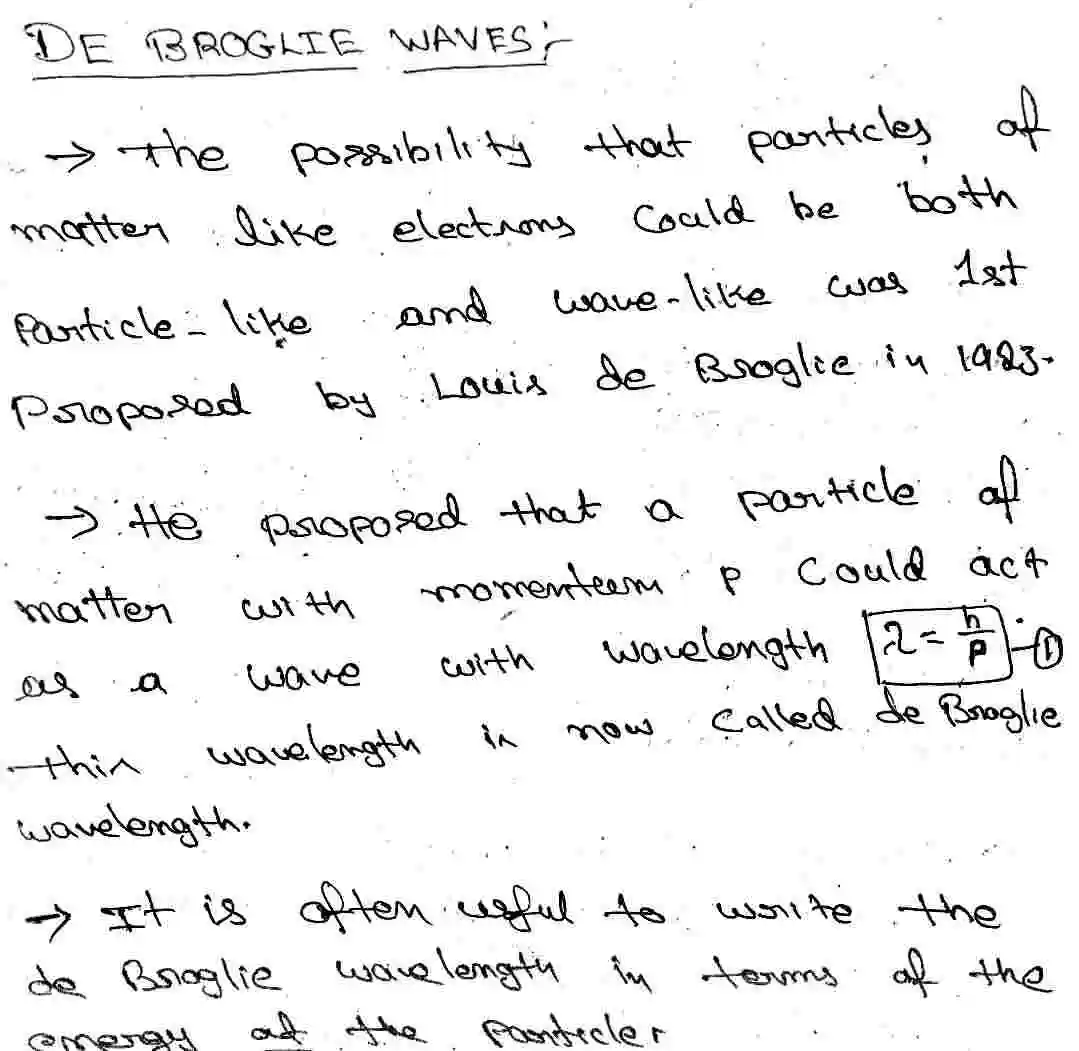 DE BROGLIE WAVES:-
→ The possibility that particles of
matter like electrons could be both
Particle-like and wave-like was 1st
Proposed by Louis de Broglie in 1923.
→ He proposed that a particle of
matter with momentum p could act
as a wave with wavelength λ = h/p -①
this wavelength is now called de Broglie
wavelength.
→ It is often useful to write the
de Broglie wavelength in terms of the
energy of the particle.